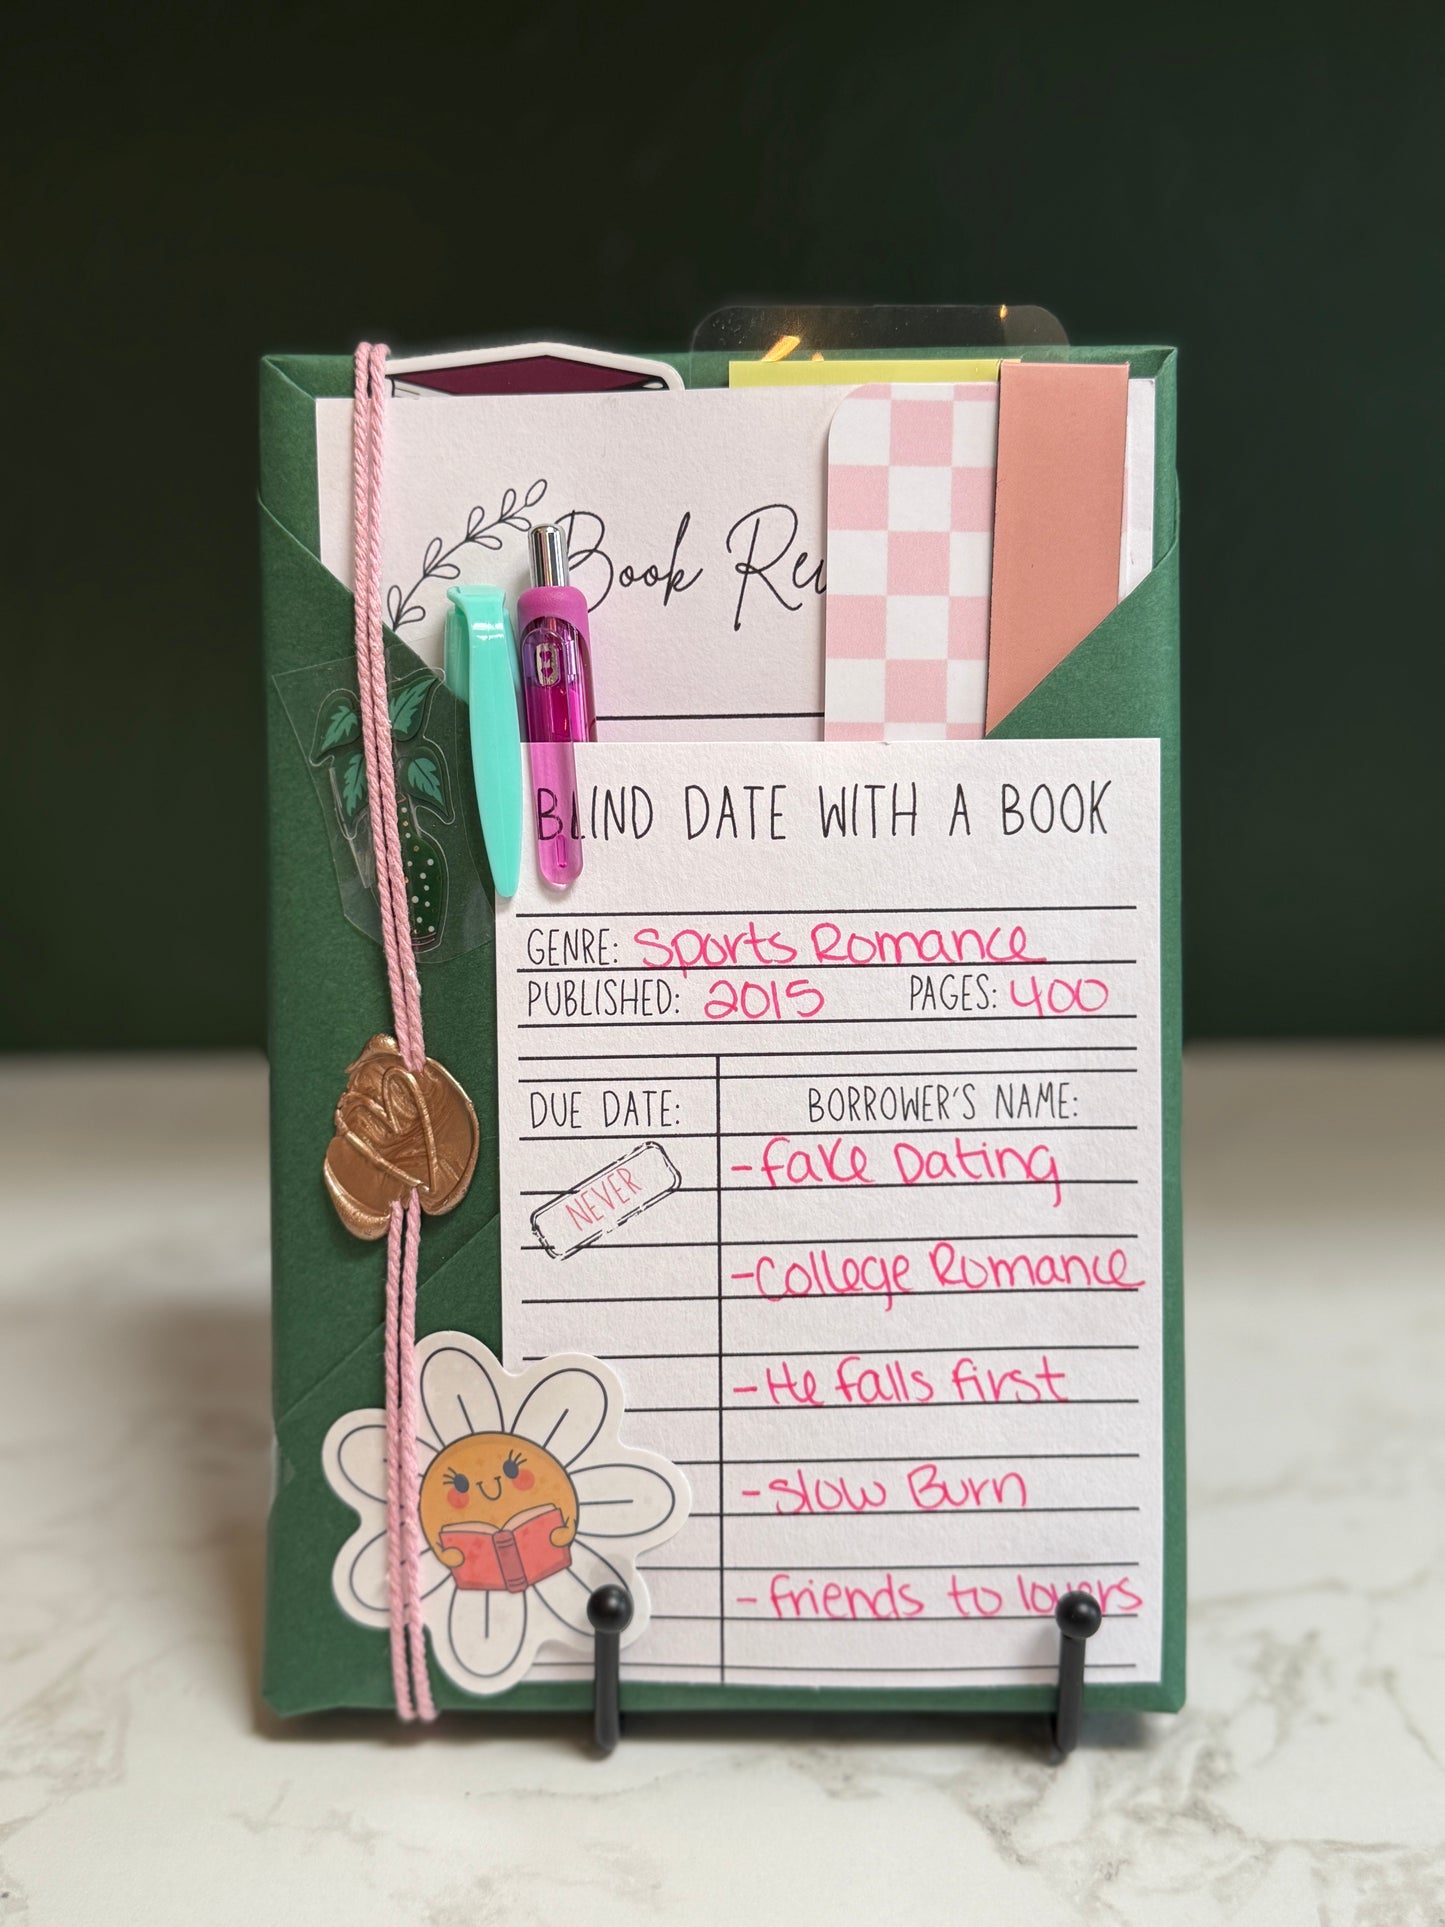 Book Rev
BLIND DATE WITH A BOOK
GENRE: Sports Romance
PUBLISHED: 2015 PAGES: 400
DUE DATE: BORROWER'S NAME:
NEVER
-Fake Dating
-College Romance
-He falls first
-Slow Burn
-friends to lovers